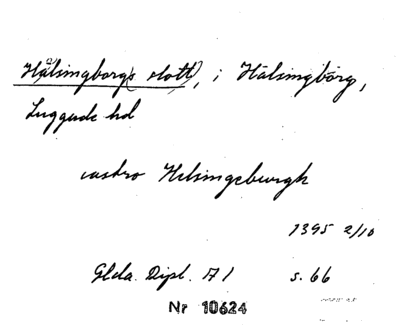 Hälsingborgs slott, i Hälsingborg,
Luggude hd
castro Helsingeburgh
1395 2/10
Glda. Dipl. A 1 s. 66
Nr 10624